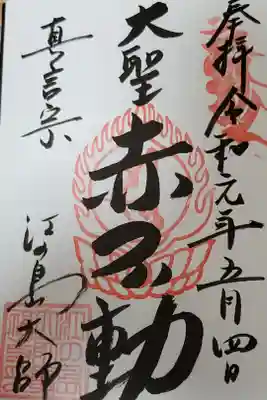 奉拝 令和元年五月四日
大聖 赤不動
真言宗
江の島大師